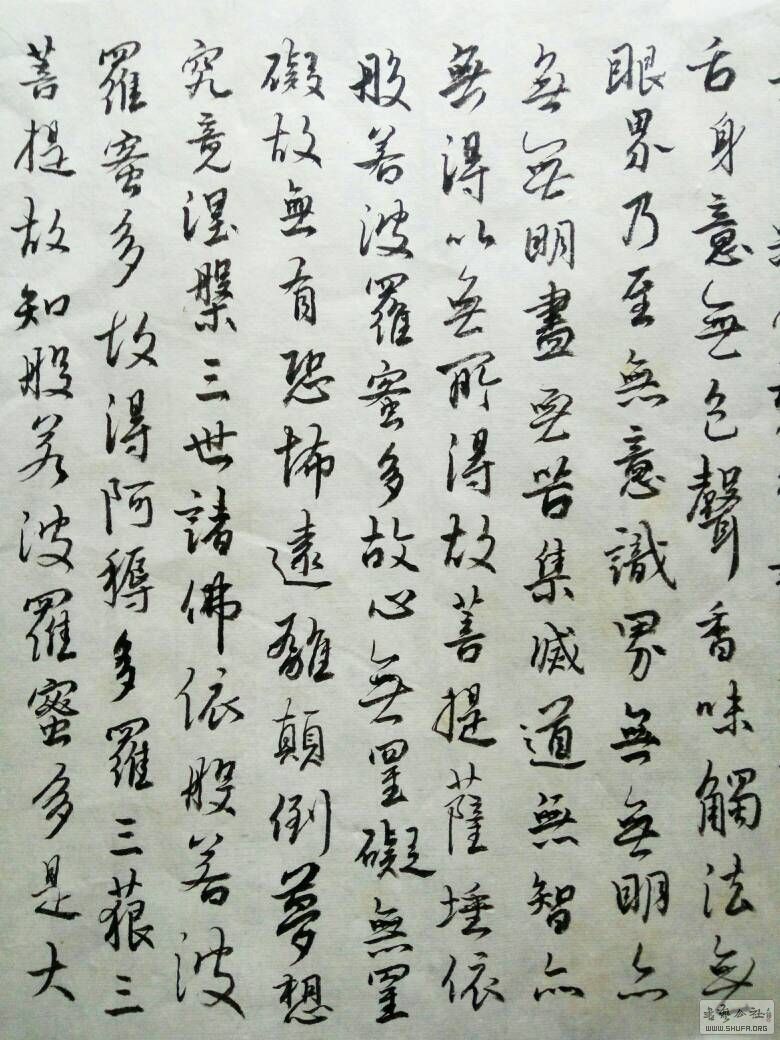 舌身意無色聲香味觸法無
眼界乃至無意識界無無明亦
無無明盡無苦集滅道無智亦
無得以無所得故菩提薩埵依
般若波羅蜜多故心無罣礙無罣
礙故無有恐怖遠離顛倒夢想
究竟涅槃三世諸佛依般若波
羅蜜多故得阿耨多羅三藐三
菩提故知般若波羅蜜多是大
WWW.SHUFA.ORG